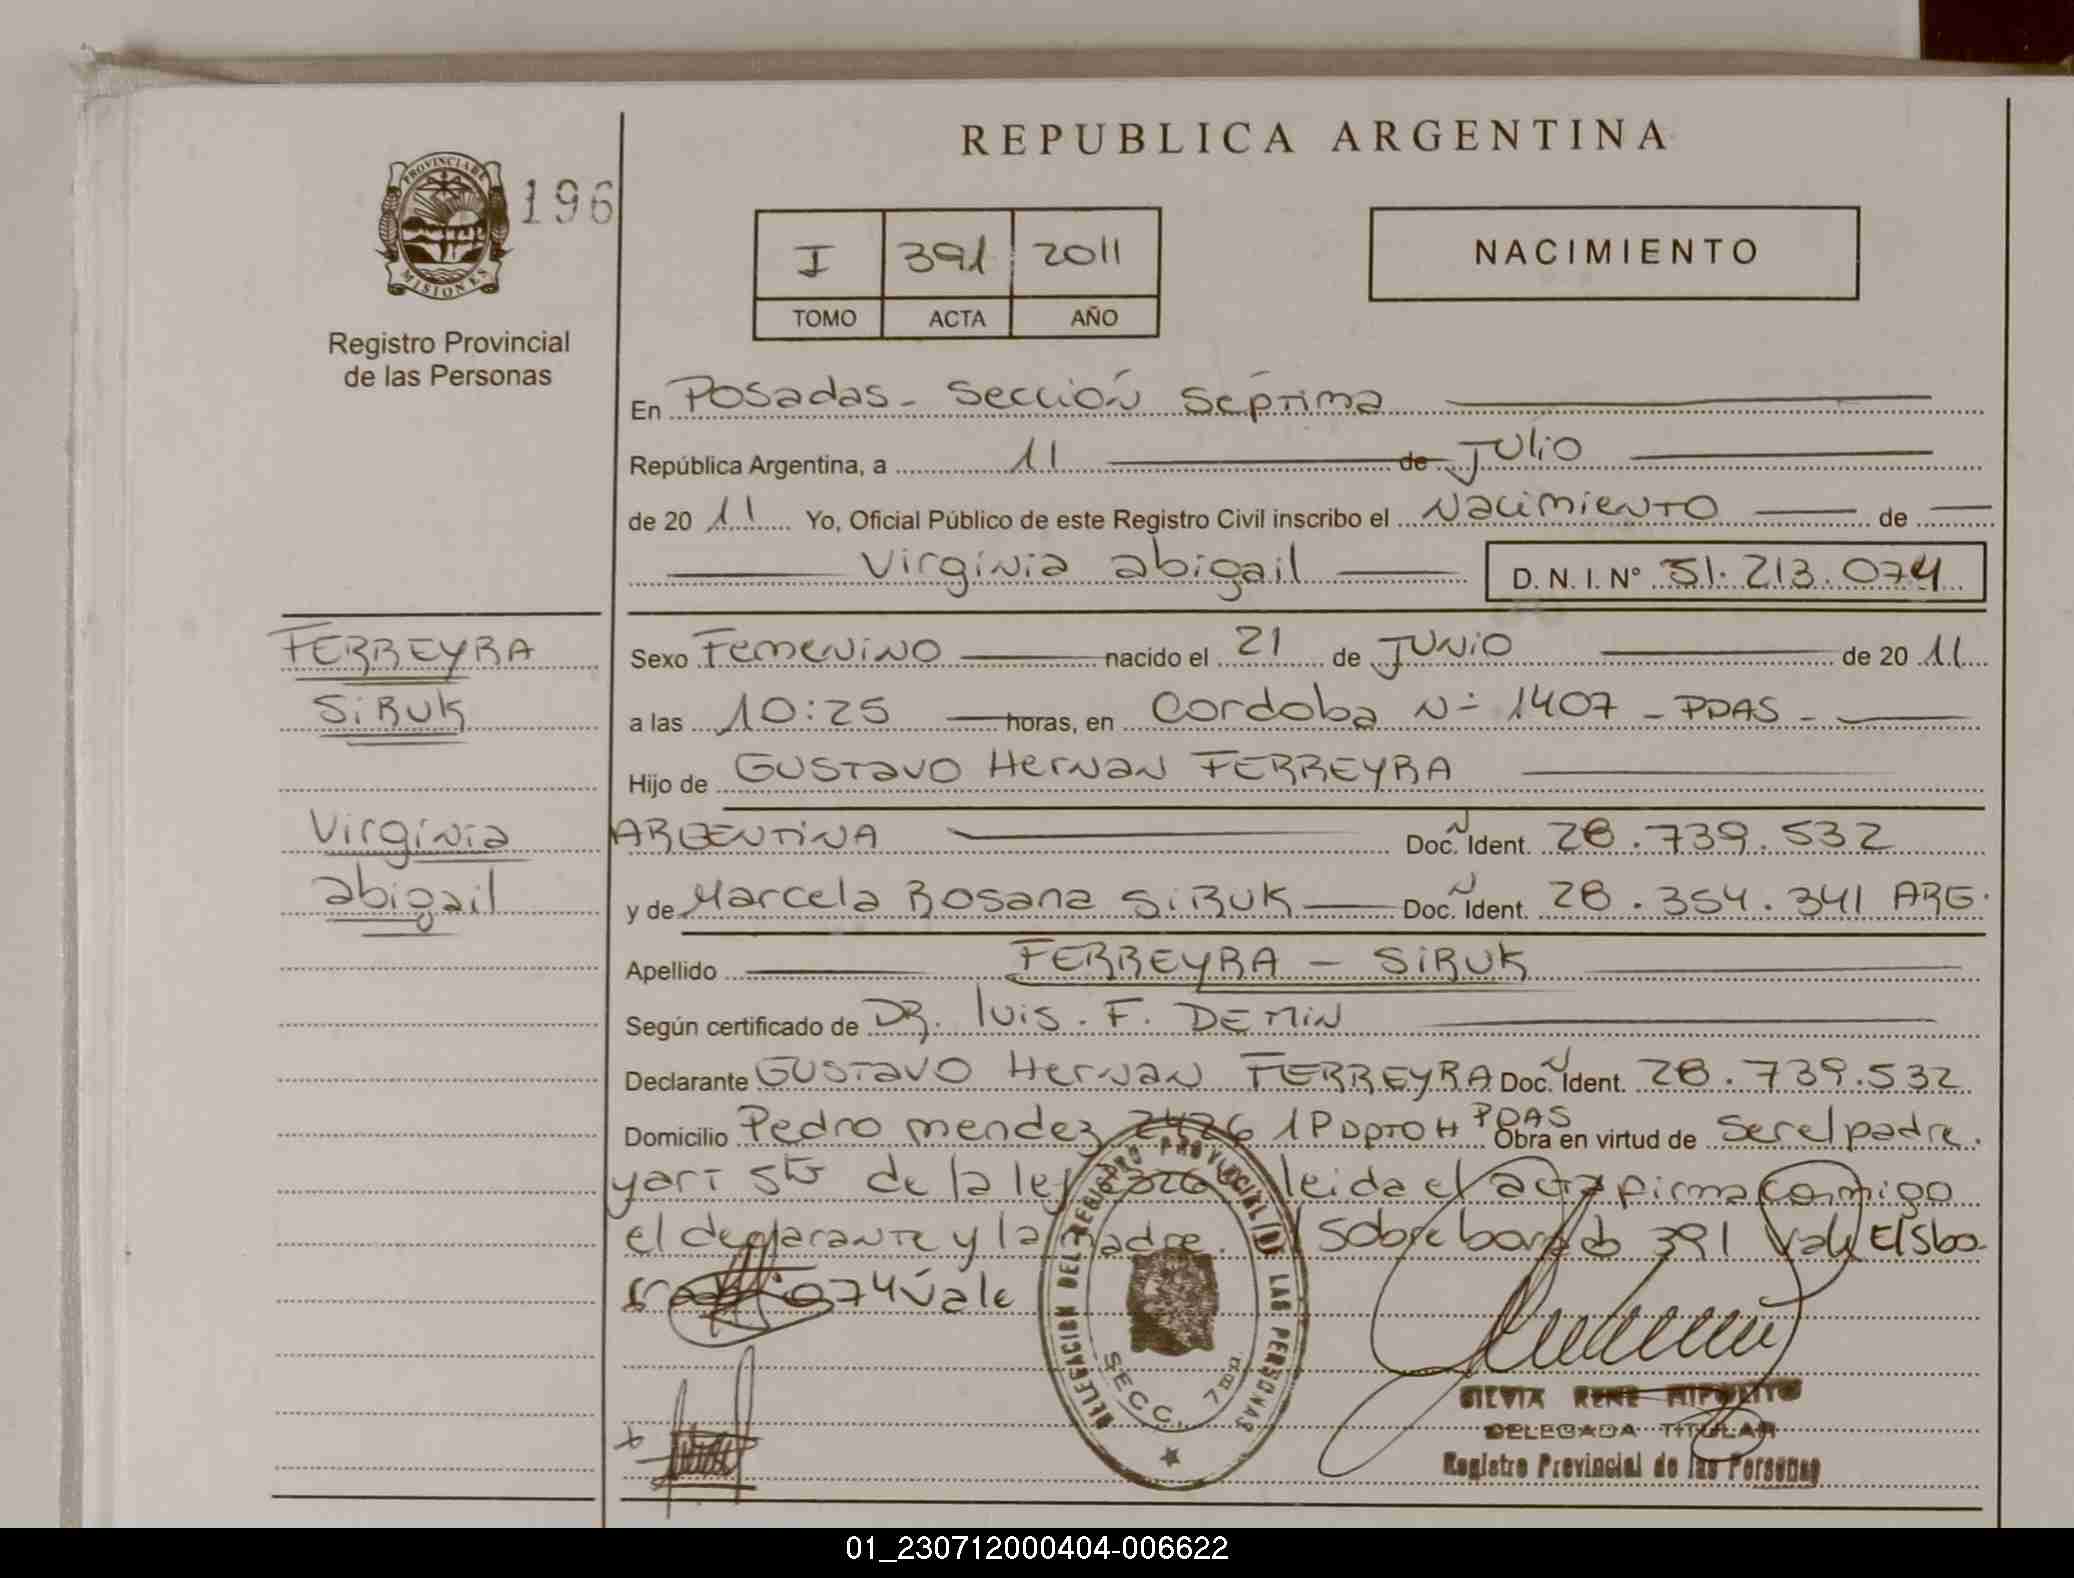 REPUBLICA ARGENTINA
PROVINCIA DE
MISIONES
196
Registro Provincial
de las Personas
I 391 2011
TOMO ACTA AÑO
NACIMIENTO
En Posadas - Sección Séptima
República Argentina, a 11 de Julio
de 2011 Yo, Oficial Público de este Registro Civil inscribo el Nacimiento de
Virginia abigail D. N. I. N° 51.213.074
FERREYRA
SIRUK
Virginia
abigail
Sexo Femenino nacido el 21 de Junio de 2011
a las 10:25 horas, en Cordoba N° 1407 - PDAS -
Hijo de Gustavo Hernan FERREYRA
ARGENTINA Doc. Ident. 28.739.532
y de Marcela Rosana SIRUK Doc. Ident. 28.354.341 ARG.
Apellido FERREYRA - SIRUK
Según certificado de DR. luis. F. DEMIN
Declarante Gustavo Hernan FERREYRA Doc. Ident. 28.739.532
Domicilio Pedro mendez 2426 1P DPTO H PDAS Obra en virtud de ser el padre.
y art 5to de la ley leida el acta firma conmigo
el declarante y la madre. Sobre borrado 391 Vale El sbo
074 Vale
DELEGACION DEL REGISTRO PROVINCIAL DE LAS PERSONAS
SECC. 7ma
SILVIA RENE HIPOLITO
DELEGADA TITULAR
Registro Provincial de las Personas
01_230712000404-006622